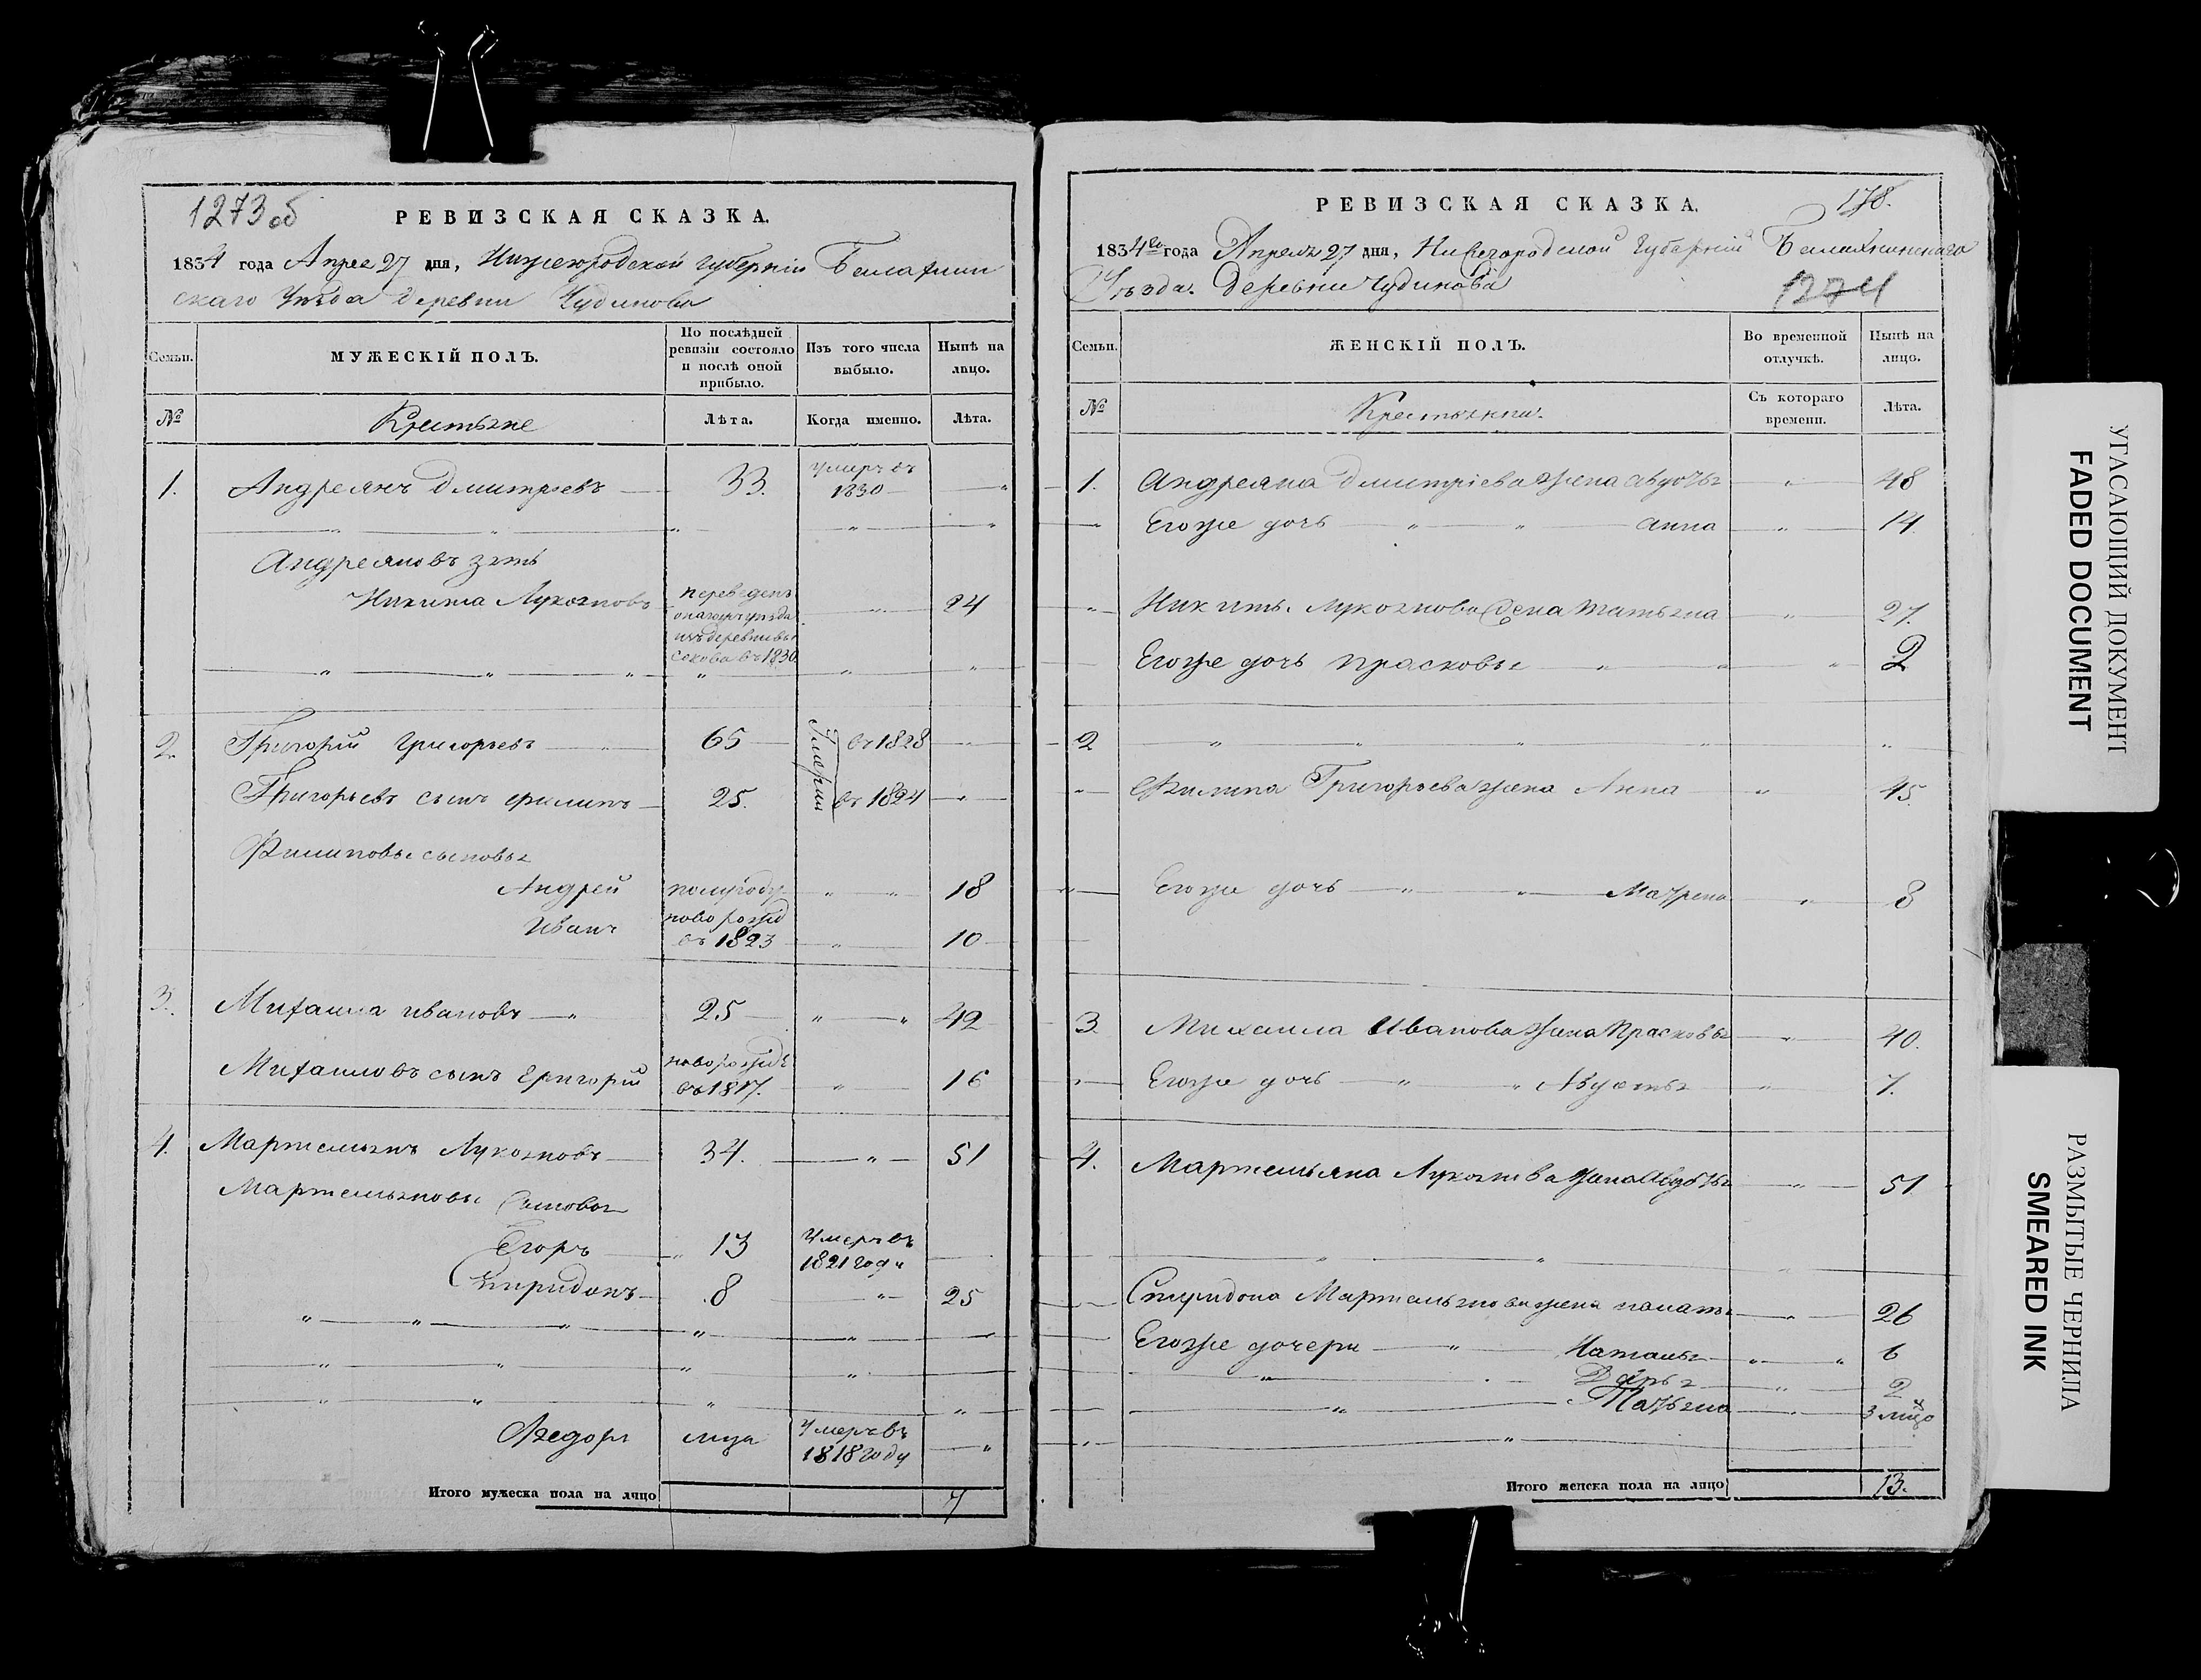 1273об
РЕВИЗСКАЯ СКАЗКА.
1834 года Апреля 27 дня, Нижегородской губернии Балахнин
скаго уѣзда деревни Чудинова
Семьи.
МУЖЕСКІЙ ПОЛЪ.
По послѣдней ревизіи состояло и послѣ оной прибыло.
Изъ того числа выбыло.
Нынѣ на лицо.
№
Крестьяне
Лѣта.
Когда именно.
Лѣта.
1. Андреянъ Дмитріевъ 33. умеръ въ 1830
Андреяновъ зять
Никита Лукояновъ переведенъ 24
изъ деревни
въ 1830
2. Григорій Григорьевъ 65 Умерли въ 1828
Григорьевъ сынъ Филипъ 25. въ 1824
Филиповы сыновья
Андрей полугоду 18
Иванъ новорожд въ 1823 10
3. Михаила Ивановъ 25 42
Михаиловъ сынъ Григорій новорожд въ 1817. 16
4. Мартемьянъ Лукояновъ 34. 51
Мартемьяновы сыновья
Егоръ 13 Умеръ въ 1821 году
Спиридонъ 8 25
Федоръ Умеръ въ 1818 году
Итого мужеска пола на лицо 7
РЕВИЗСКАЯ СКАЗКА.
178.
1834го года Апреля 27 дня, Нижегородской Губерніи Балахнинскаго
Уѣзда. Деревни Чудинова
1274
Семьи.
ЖЕНСКІЙ ПОЛЪ.
Во временной отлучкѣ.
Нынѣ на лицо.
№
Крестьянки.
Съ котораго времени.
Лѣта.
1. Андреяна Дмитріева жена Авдотья 48
Егоже дочь Анна 14
Никиты Лукоянова жена Татьяна 27.
Егоже дочь Прасковья 2
2
Филипа Григорьева жена Анна 45.
Егоже дочь Матрена 8
3. Михаила Иванова жена Прасковья 40.
Егоже дочь Авдотья 7.
4. Мартемьяна Лукоянова жена Авдотья 51
Спиридона Мартемьянова жена 26
Егоже дочери Наталья 6
Дарья 2
Татьяна 3
Итого женска пола на лицо 13.
УГАСАЮЩИЙ ДОКУМЕНТ
FADED DOCUMENT
РАЗМЫТЫЕ ЧЕРНИЛА
SMEARED INK